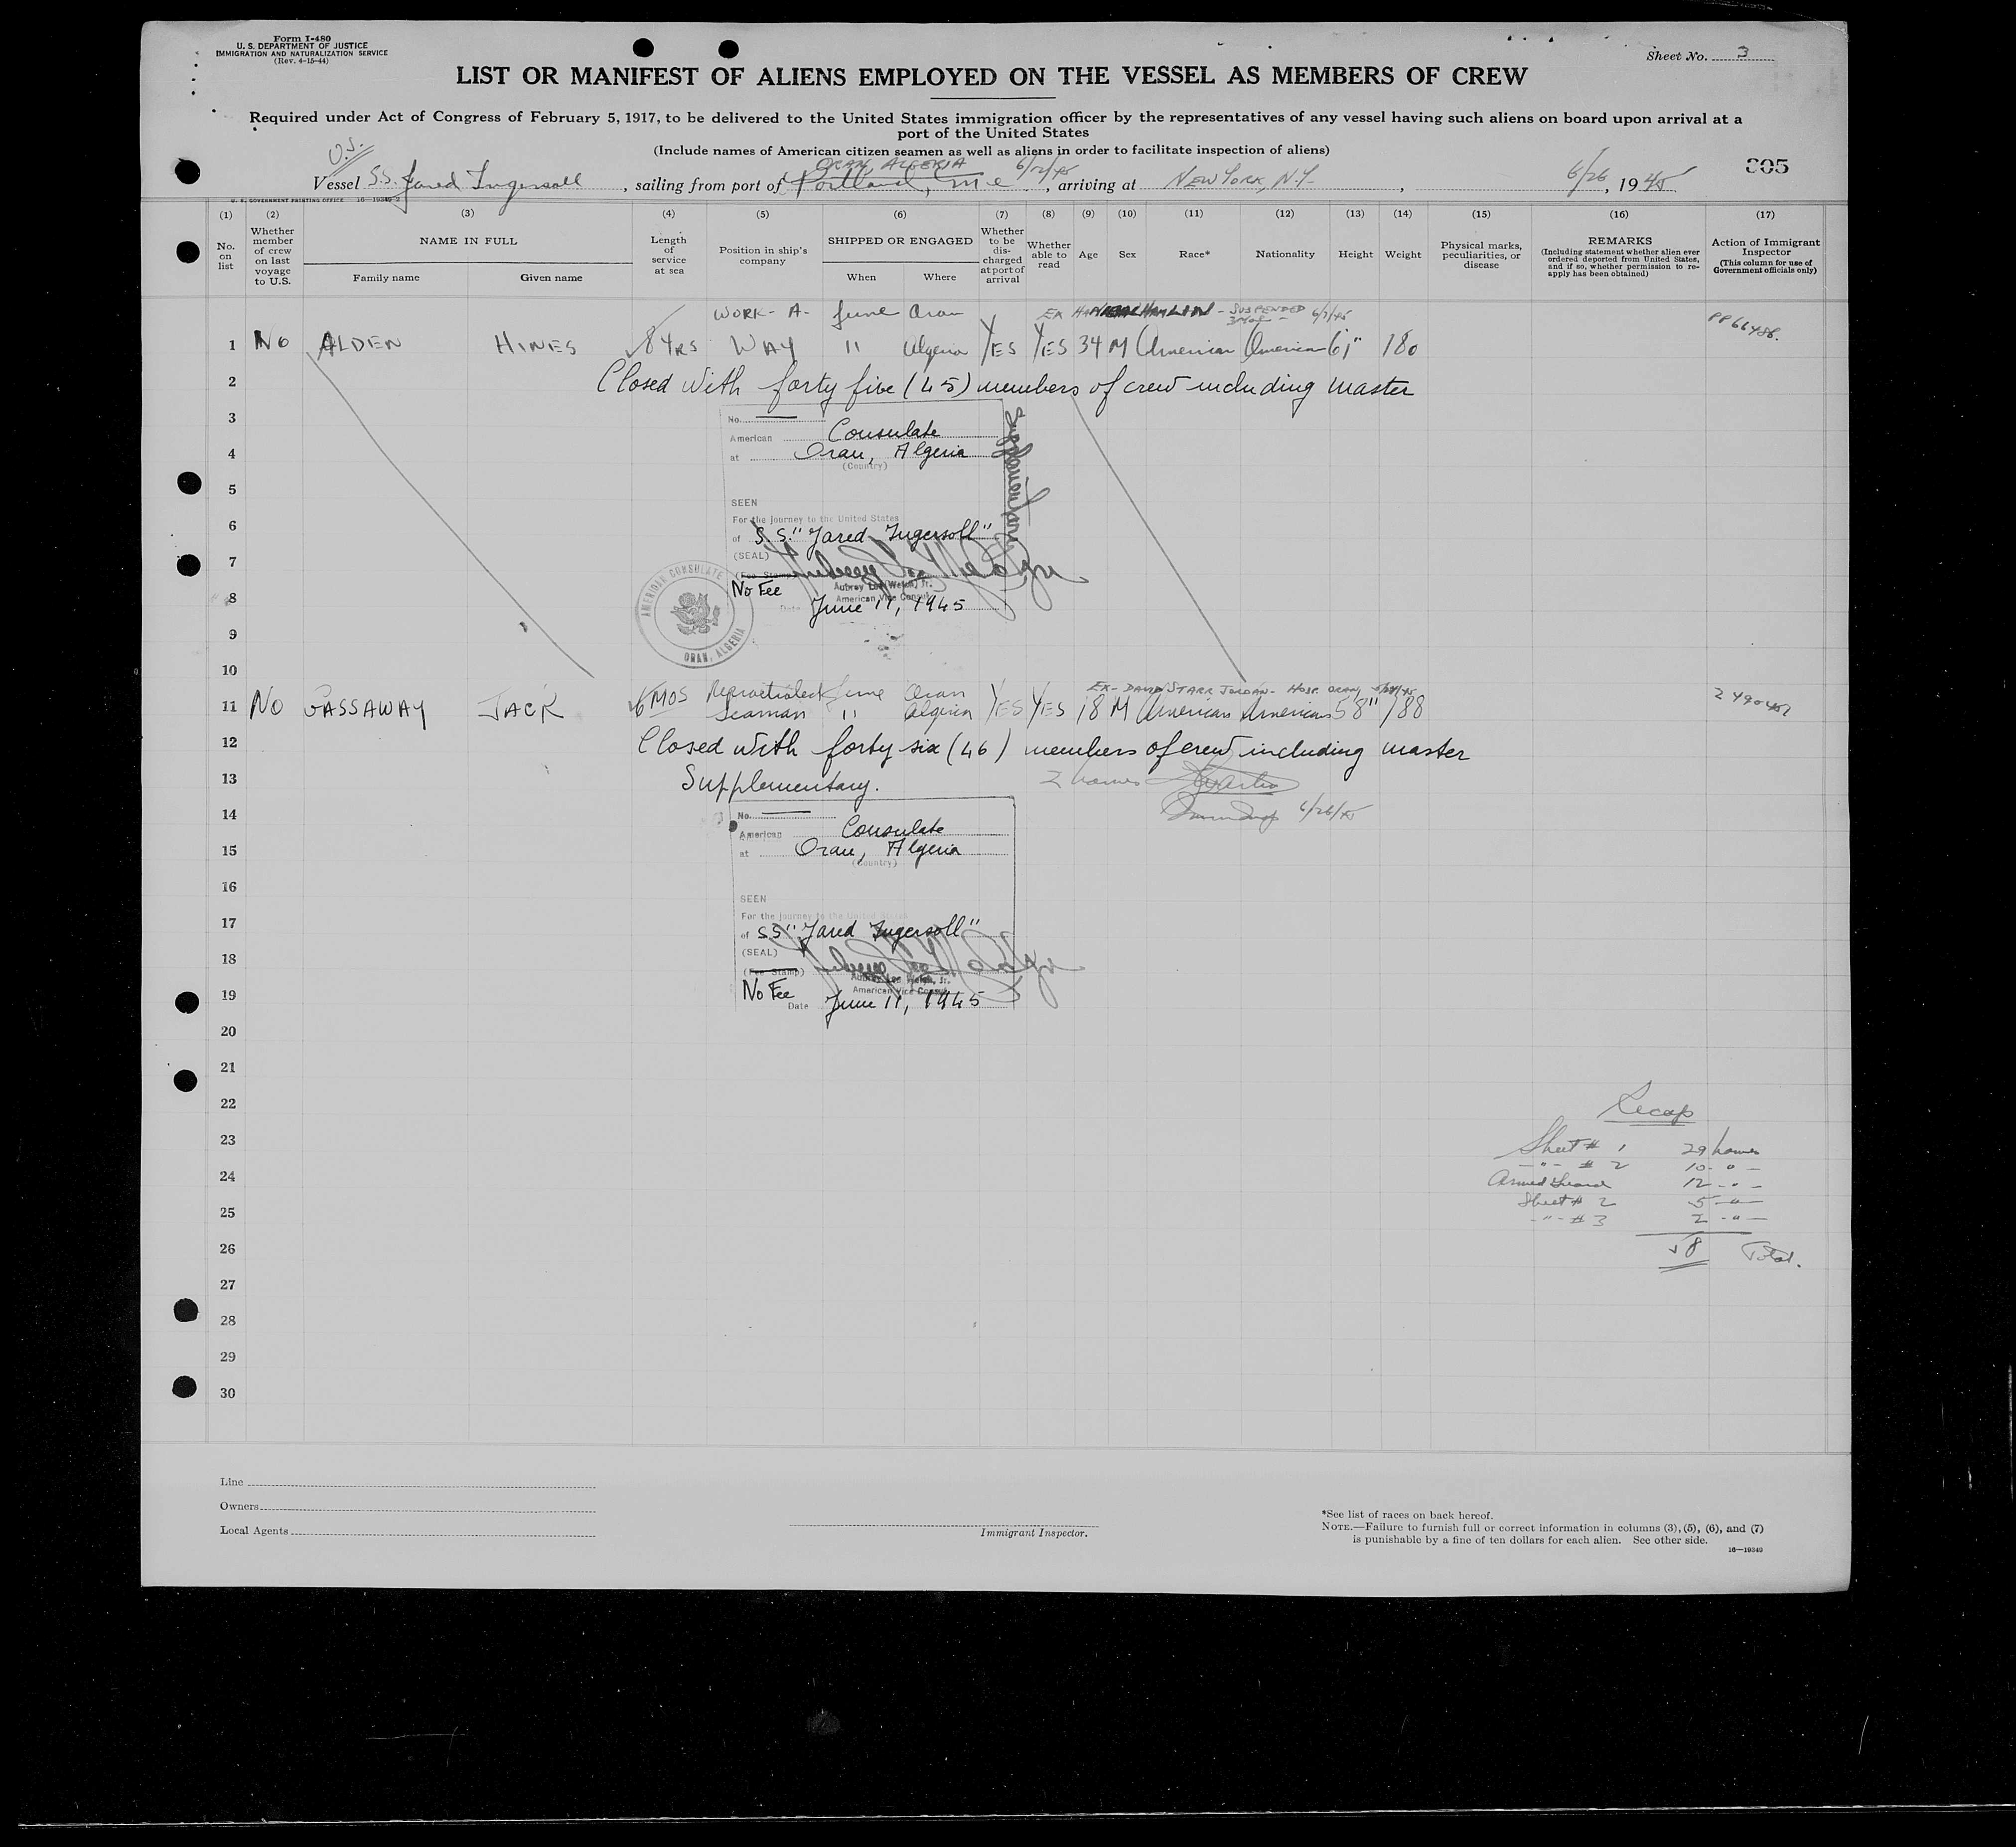 Form I-480
U. S. DEPARTMENT OF JUSTICE
IMMIGRATION AND NATURALIZATION SERVICE
(Rev. 4-15-44)
Sheet No. 3
LIST OR MANIFEST OF ALIENS EMPLOYED ON THE VESSEL AS MEMBERS OF CREW
Required under Act of Congress of February 5, 1917, to be delivered to the United States immigration officer by the representatives of any vessel having such aliens on board upon arrival at a
port of the United States
(Include names of American citizen seamen as well as aliens in order to facilitate inspection of aliens)
U.S.
ORAN, ALGERIA 6/12/45
305
Vessel S.S. Jared Ingersoll, sailing from port of Portland, Me, arriving at NEW YORK, N.Y., 6/26, 1945
U. S. GOVERNMENT PRINTING OFFICE 16—19349-2
(1) (2) (3) (4) (5) (6) (7) (8) (9) (10) (11) (12) (13) (14) (15) (16) (17)
No. on list
Whether member of crew on last voyage to U.S.
NAME IN FULL
Family name
Given name
Length of service at sea
Position in ship's company
SHIPPED OR ENGAGED
When
Where
Whether to be discharged at port of arrival
Whether able to read
Age
Sex
Race*
Nationality
Height
Weight
Physical marks, peculiarities, or disease
REMARKS
(Including statement whether alien ever ordered deported from United States, and if so, whether permission to reapply has been obtained)
Action of Immigrant Inspector
(This column for use of Government officials only)
WORK-A- June Oran EX HAMLIN - SUSPENDED 6/7/45
PP66488.
1 No ALDEN HINES 8 YRS WAY " Algeria YES YES 34 M American American 6'1" 180
2 Closed with forty five (45) members of crew including master
3 No.
American Consulate
4 at Oran, Algeria
(Country)
Supplementary
5
SEEN
6 For the journey to the United States
of S.S. "Jared Ingersoll"
7 (SEAL)
(Fee Stamp)
No Fee
Aubrey Lee Welch, Jr.
8 American Vice Consul
Date June 11, 1945
AMERICAN CONSULATE
ORAN, ALGERIA
9
10
Repatriated June Oran EX-DAVID STARR JORDAN- HOSP. ORAN,
11 No GASSAWAY JACK 6 MOS Seaman " Algeria YES YES 18 M American American 5'8" 188
12 Closed with forty six (46) members of crew including master
13 Supplementary.
6/26/45
14 No.
American Consulate
15 at Oran, Algeria
(Country)
16
SEEN
17 For the journey to the United States
of SS "Jared Ingersoll"
18 (SEAL)
(Fee Stamp)
Aubrey Lee Welch, Jr.
19 No Fee
American Vice Consul
Date June 11, 1945
20
21
22 Recap
23 Sheet # 1 29 names
24 -"- # 2 10 -"-
Armed Guard 12 -"-
25 Sheet # 2 5 -"-
-"- # 3 2 -"-
26 58 Total.
27
28
29
30
Line
Owners
Local Agents
Immigrant Inspector.
*See list of races on back hereof.
NOTE.—Failure to furnish full or correct information in columns (3), (5), (6), and (7)
is punishable by a fine of ten dollars for each alien. See other side.
16—19349